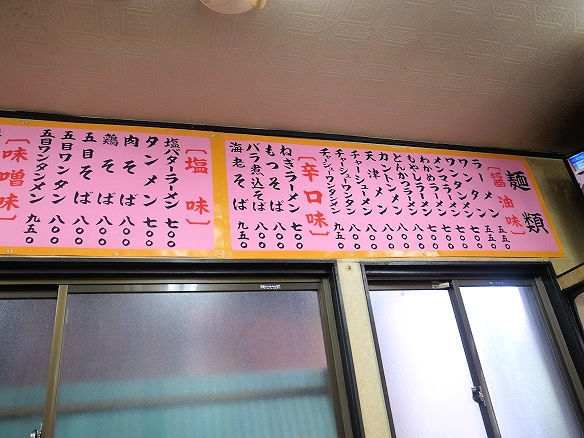 麺類
[醤油味]
ラーメン 五五〇
ワンタン 五五〇
ワンタンメン 七〇〇
メンマラーメン 七〇〇
わかめラーメン 七〇〇
もやしラーメン 七〇〇
とんかつラーメン 八〇〇
カントンメン 八〇〇
天津メン 八〇〇
チャーシューメン 八〇〇
チャーシューワンタン 八〇〇
チャーシューワンタンメン 九五〇
[辛口味]
ねぎラーメン 七〇〇
もつそば 八〇〇
バラ煮込そば 八〇〇
海老そば 九五〇
[塩味]
塩バターラーメン 七〇〇
タンメン 七〇〇
肉そば 八〇〇
鶏そば 八〇〇
五目そば 八〇〇
五目ワンタン 八〇〇
五目ワンタンメン 九五〇
[味噌味]